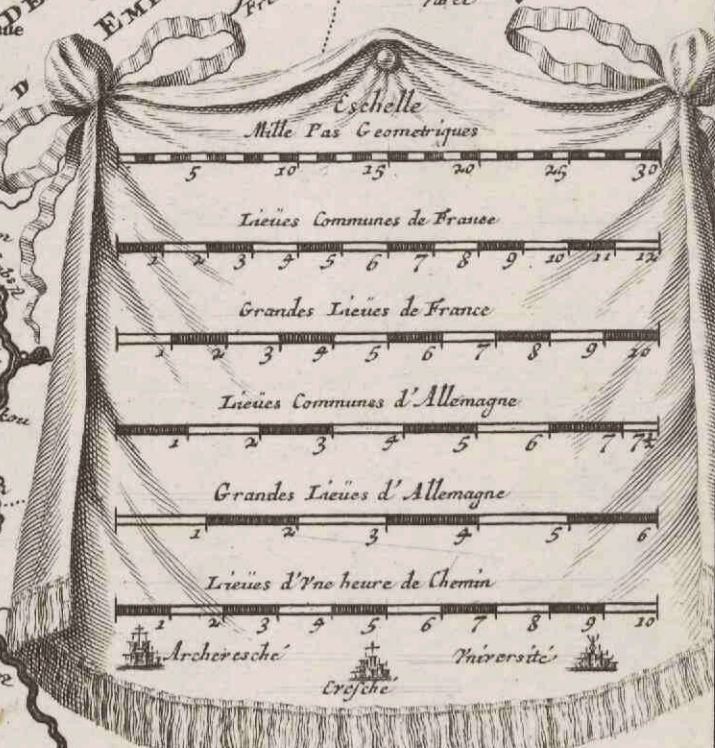 D
EMP
Eschelle
Mille Pas Geometriques
5 10 15 20 25 30
Lieües Communes de France
1 2 3 4 5 6 7 8 9 10 11 12
Grandes Lieües de France
1 2 3 4 5 6 7 8 9 10
Lieües Communes d'Allemagne
1 2 3 4 5 6 7 7½
Grandes Lieües d'Allemagne
1 2 3 4 5 6
Lieües d'Vne heure de Chemin
1 2 3 4 5 6 7 8 9 10
Archevesché Vniversité
Evesché